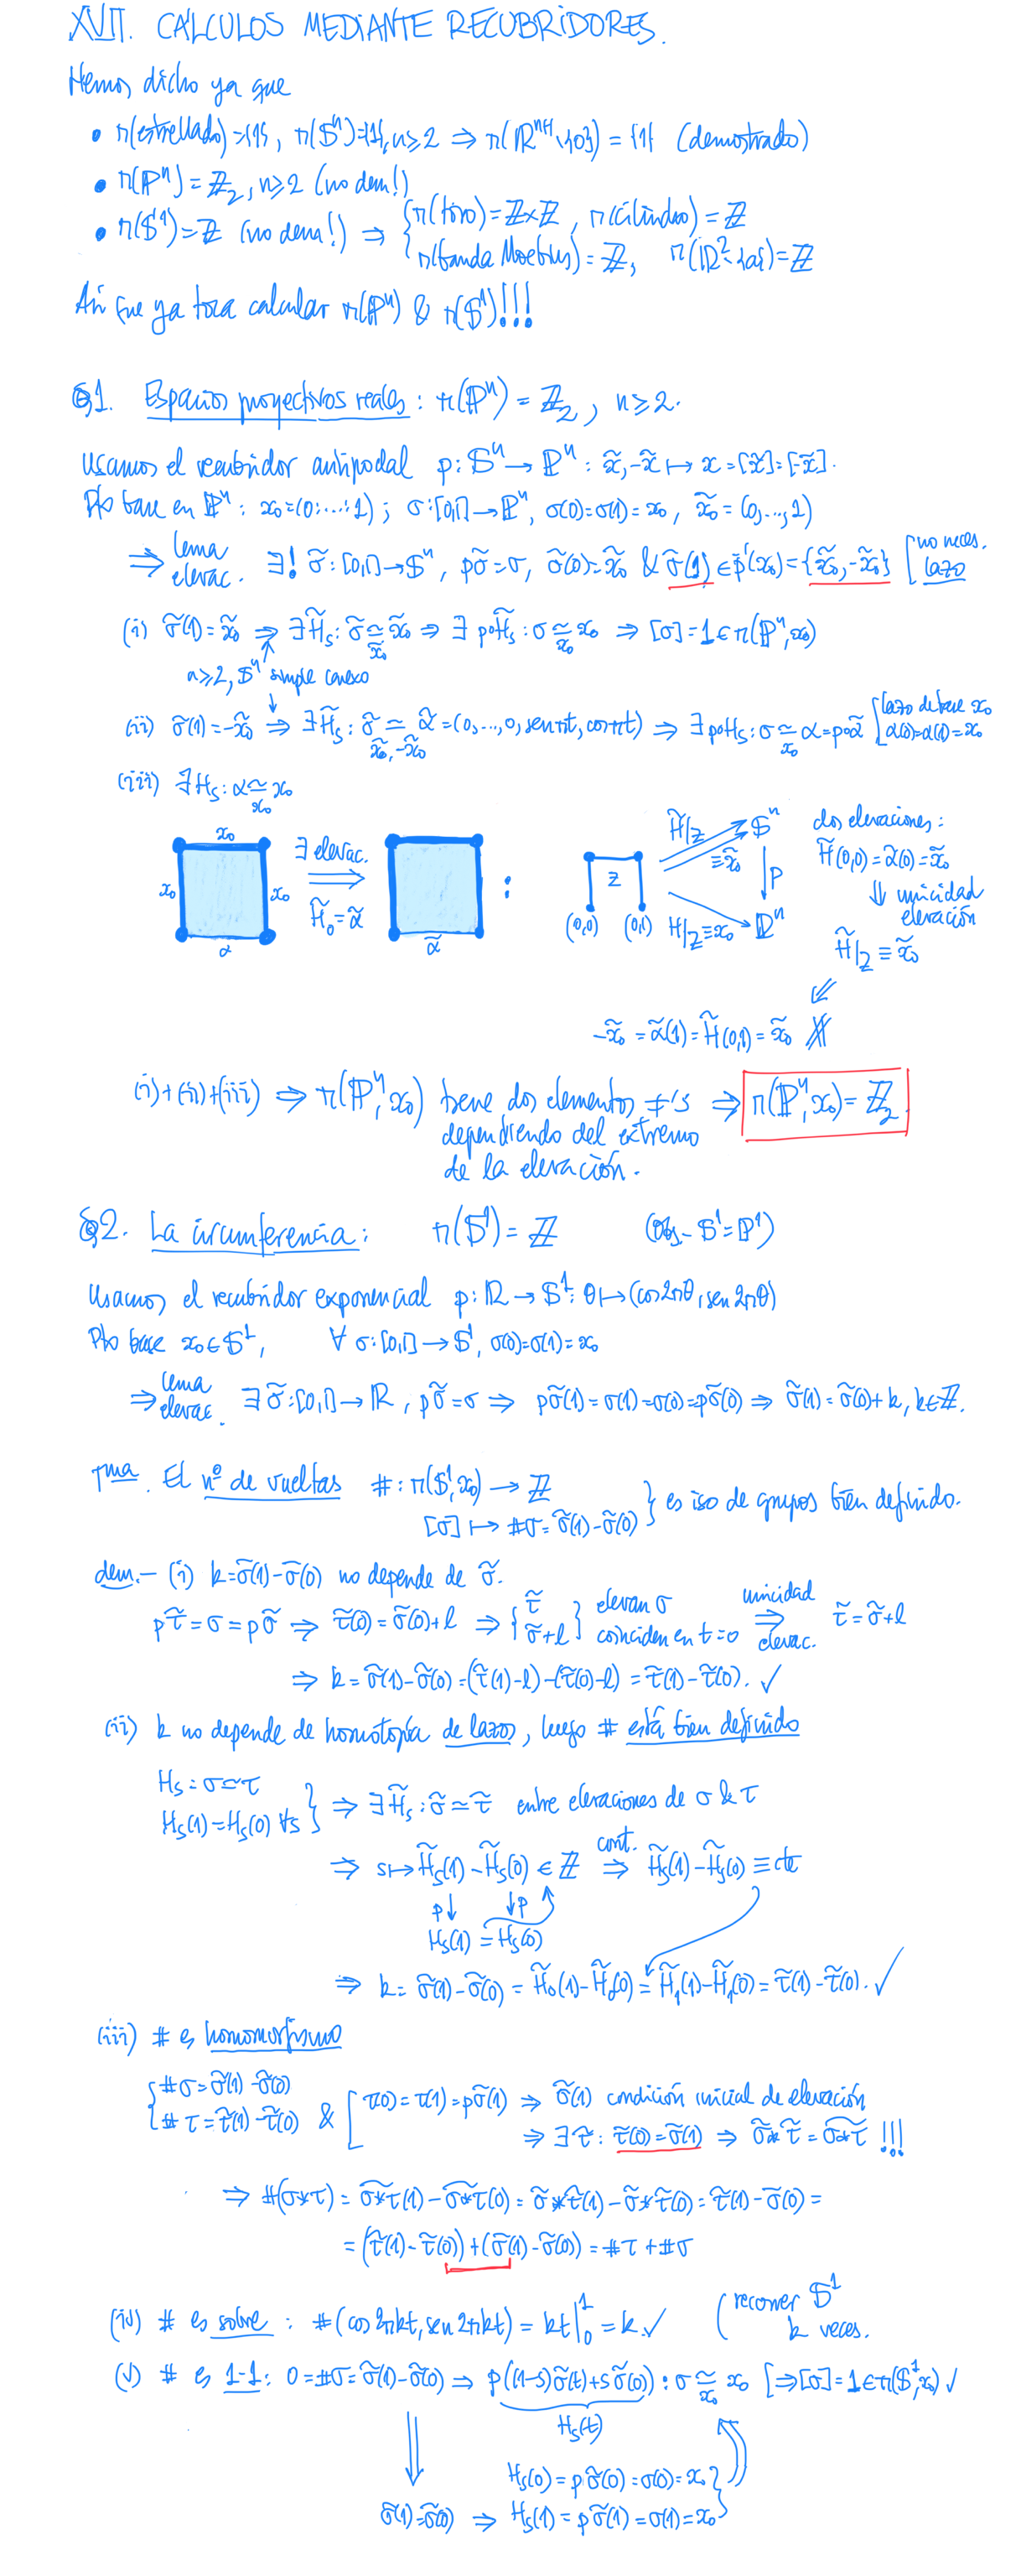 XVII. CÁLCULOS MEDIANTE RECUBRIDORES.
Hemos dicho ya que
• π(estrellado)={1}, π(𝕊ⁿ)={1}, n≥2 ⇒ π(ℝⁿ⁺¹∖{0}) = {1} (demostrado)
• π(ℙⁿ) = ℤ₂, n≥2 (no dem!)
• π(𝕊¹) = ℤ (no dem!) ⇒ { π(toro) = ℤ×ℤ, π(cilindro) = ℤ
π(banda Moebius) = ℤ, π(ℝ²∖{a}) = ℤ
Así que ya toca calcular π(ℙⁿ) & π(𝕊¹)!!!
§1. Espacios proyectivos reales: π(ℙⁿ) = ℤ₂, n≥2.
Usamos el recubridor antipodal p: 𝕊ⁿ → ℙⁿ : x̃, -x̃ ↦ x = [x̃] = [-x̃].
Pto base en ℙⁿ: x₀=(0:...:1) ; σ:[0,1] → ℙⁿ, σ(0)=σ(1)=x₀, x̃₀ = (0,...,1)
⇒ lema elevac. ∃! σ̃:[0,1]→𝕊ⁿ, pσ̃=σ, σ̃(0)=x̃₀ & σ̃(1) ∈ p⁻¹(x₀) = {x̃₀, -x̃₀} [ no neces. lazo
(i) σ̃(1) = x̃₀ ⇒ ∃H̃ₛ: σ̃ ≃ x̃₀ ⇒ ∃ p∘H̃ₛ: σ ≃ x₀ ⇒ [σ] = 1 ∈ π(ℙⁿ, x₀)
x̃₀ x₀
n≥2, 𝕊ⁿ simple conexo
(ii) σ̃(1) = -x̃₀ ⇒ ∃H̃ₛ: σ̃ ≃ α̃ = (0,...,0, sen πt, cos πt) ⇒ ∃ p∘H̃ₛ: σ ≃ α = p∘α̃ [ lazo de base x₀
x̃₀, -x̃₀ x₀ α(0)=α(1)=x₀
(iii) ∃Hₛ: α ≃ x₀
x₀
x₀
x₀ x₀
α
∃ elevac.
⇒
H̃₀ = α̃
α̃
:
Z
(0,0) (0,1)
H̃|Z 𝕊ⁿ
≡x̃₀
p
H|Z ≡ x₀ ℙⁿ
dos elevaciones:
H̃(0,0) = α̃(0) = x̃₀
⇓ unicidad elevación
H̃|Z ≡ x̃₀
-x̃₀ = α̃(1) = H̃(0,1) = x̃₀
(i)+(ii)+(iii) ⇒ π(ℙⁿ, x₀) tiene dos elementos ≠'s ⇒ π(ℙⁿ, x₀) = ℤ₂.
dependiendo del extremo
de la elevación.
§2. La circunferencia: π(𝕊¹) = ℤ (Obs.- 𝕊¹ = ℙ¹)
Usamos el recubridor exponencial p: ℝ → 𝕊¹: θ ↦ (cos 2πθ, sen 2πθ)
Pto base x₀∈𝕊¹, ∀ σ:[0,1] → 𝕊¹, σ(0)=σ(1)=x₀
⇒ lema elevac. ∃ σ̃:[0,1]→ℝ, pσ̃=σ ⇒ pσ̃(1)=σ(1)=σ(0)=pσ̃(0) ⇒ σ̃(1) = σ̃(0)+k, k∈ℤ.
Tma. El nº de vueltas #: π(𝕊¹, x₀) → ℤ
[σ] ↦ #σ = σ̃(1)-σ̃(0) } es iso de grupos bien definido.
dem.- (i) k=σ̃(1)-σ̃(0) no depende de σ̃.
pτ̃ = σ = pσ̃ ⇒ τ̃(0) = σ̃(0)+l ⇒ { τ̃, σ̃+l } elevan σ coinciden en t=0 unicidad ⇒ elevac. τ̃ = σ̃+l
⇒ k = σ̃(1)-σ̃(0) = (τ̃(1)-l)-(τ̃(0)-l) = τ̃(1)-τ̃(0). ✓
(ii) k no depende de homotopía de lazos, luego # está bien definido
Hₛ: σ≃τ
Hₛ(1)=Hₛ(0) ∀s } ⇒ ∃H̃ₛ: σ̃ ≃ τ̃ entre elevaciones de σ & τ
⇒ s↦H̃ₛ(1)-H̃ₛ(0) ∈ ℤ cont. ⇒ H̃ₛ(1)-H̃ₛ(0) ≡ cte
p↓ ↓p
Hₛ(1) = Hₛ(0)
⇒ k = σ̃(1)-σ̃(0) = H̃₀(1)-H̃₀(0) = H̃₁(1)-H̃₁(0) = τ̃(1)-τ̃(0). ✓
(iii) # es homomorfismo
{ #σ = σ̃(1)-σ̃(0)
#τ = τ̃(1)-τ̃(0) & [ τ(0)=τ(1)=pσ̃(1) ⇒ σ̃(1) condición inicial de elevación
⇒ ∃τ̃: τ̃(0)=σ̃(1) ⇒ σ̃*τ̃ = (σ*τ)~ !!!
⇒ #(σ*τ) = (σ*τ)~(1)-(σ*τ)~(0) = σ̃*τ̃(1)-σ̃*τ̃(0) = τ̃(1)-σ̃(0) =
= (τ̃(1)-τ̃(0))+(σ̃(1)-σ̃(0)) = #τ+#σ
(iv) # es sobre: #(cos 2πkt, sen 2πkt) = kt|₀¹ = k ✓ ( recorrer 𝕊¹
k veces.
(v) # es 1-1: 0 = #σ = σ̃(1)-σ̃(0) ⇒ p((1-s)σ̃(t)+sσ̃(0)): σ ≃ x₀ [⇒[σ]=1∈π(𝕊¹,x₀) ✓
Hₛ(t) x₀
Hₛ(0) = pσ̃(0) = σ(0) = x₀
σ̃(1)=σ̃(0) ⇒ Hₛ(1) = pσ̃(1) = σ(1) = x₀